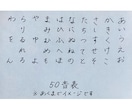 あいうえお
かきくけこ
さしすせそ
たちつてと
なにぬねの
はひふへほ
まみむめも
やゆよ
らりるれろ
わをん
50音表
※あくまでイメージです